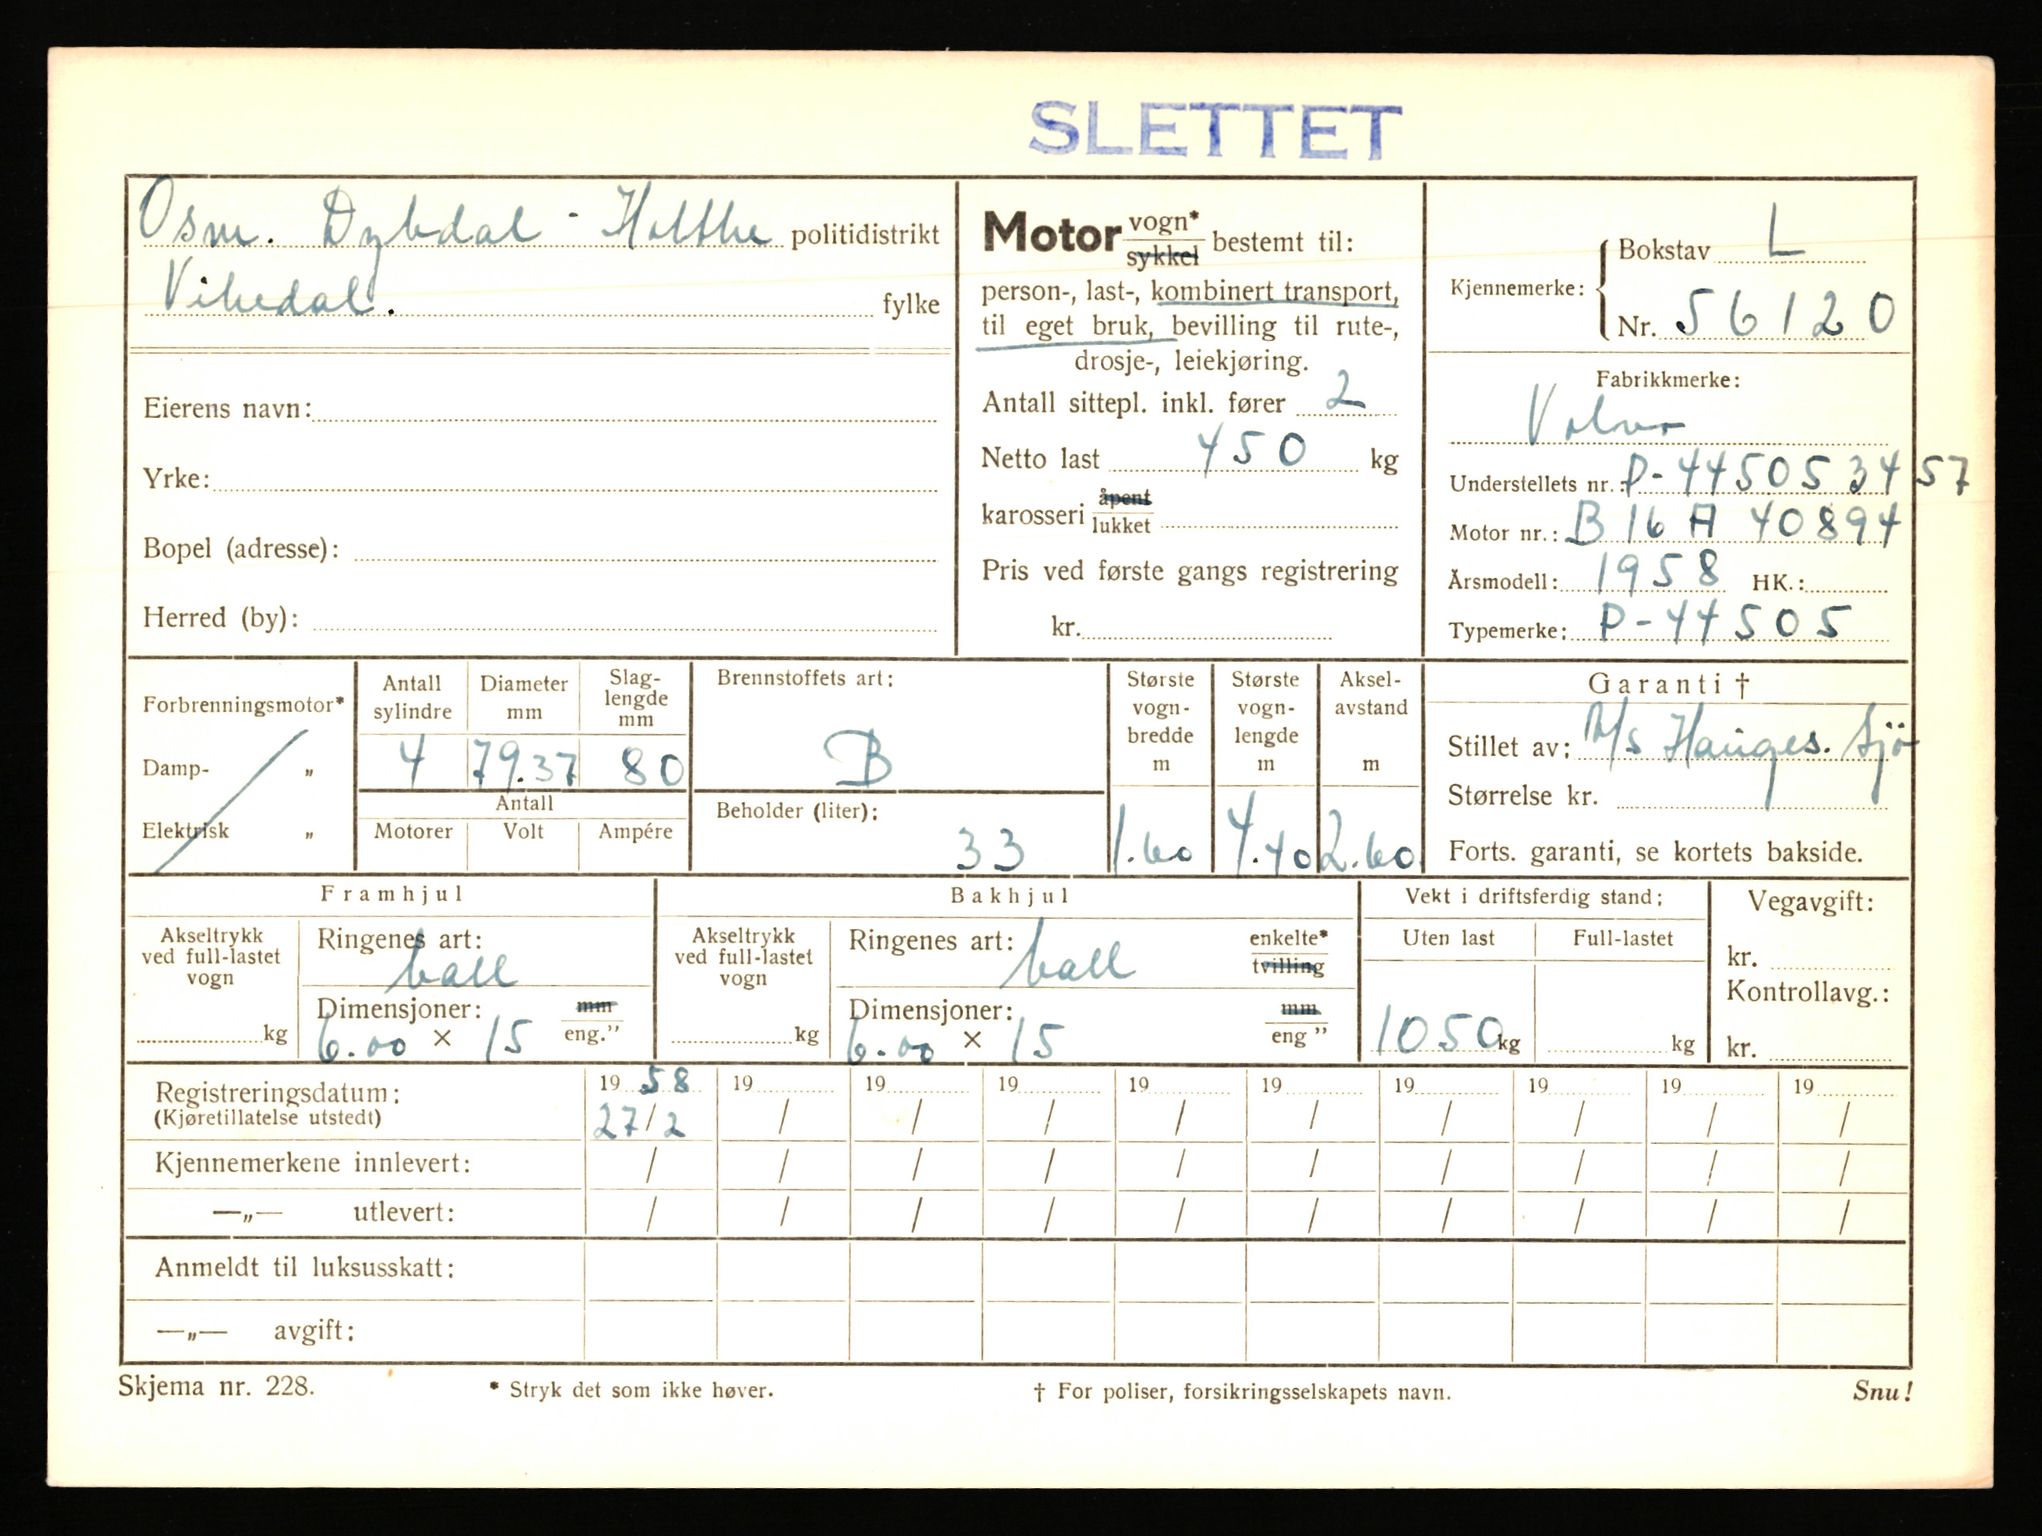 SLETTET
Osm. Dybdal - Holthe politidistrikt
Vikedal. fylke
Eierens navn:
Yrke:
Bopel (adresse):
Herred (by):
Motor vogn* sykkel bestemt til:
person-, last-, kombinert transport,
til eget bruk, bevilling til rute-,
drosje-, leiekjøring.
Antall sittepl. inkl. fører 2
Netto last 450 kg
karosseri åpent lukket
Pris ved første gangs registrering
kr.
Kjennemerke: Bokstav L
Nr. 56120
Fabrikkmerke:
Volvo
Understellets nr.: P-445053457
Motor nr.: B16A 40894
Årsmodell: 1958 HK.:
Typemerke: P-44505
Forbrenningsmotor*
Damp- „
Elektrisk „
Antall sylindre
Diameter mm
Slag-lengde mm
4 79.37 80
Antall
Motorer Volt Ampére
Brennstoffets art:
B
Beholder (liter):
33
Største vogn-bredde m
1.60
Største vogn-lengde m
4.40
Aksel-avstand m
2.60
Garanti †
Stillet av: A/s Hauges. Sjö
Størrelse kr.
Forts. garanti, se kortets bakside.
Framhjul
Akseltrykk ved full-lastet vogn
kg
Ringenes art:
ball
Dimensjoner: mm
6.00 × 15 eng.”
Bakhjul
Akseltrykk ved full-lastet vogn
kg
Ringenes art: enkelte*
ball tvilling
Dimensjoner: mm
6.00 × 15 eng ”
Vekt i driftsferdig stand:
Uten last Full-lastet
1050 kg kg
Vegavgift:
kr.
Kontrollavg.:
kr.
Registreringsdatum: 19 58 19 19 19 19 19 19 19 19 19
(Kjøretillatelse utstedt) 27/2 / / / / / / / / /
Kjennemerkene innlevert: / / / / / / / / / /
—„— utlevert: / / / / / / / / / /
Anmeldt til luksusskatt:
—„— avgift:
Skjema nr. 228. * Stryk det som ikke høver. † For poliser, forsikringsselskapets navn. Snu!